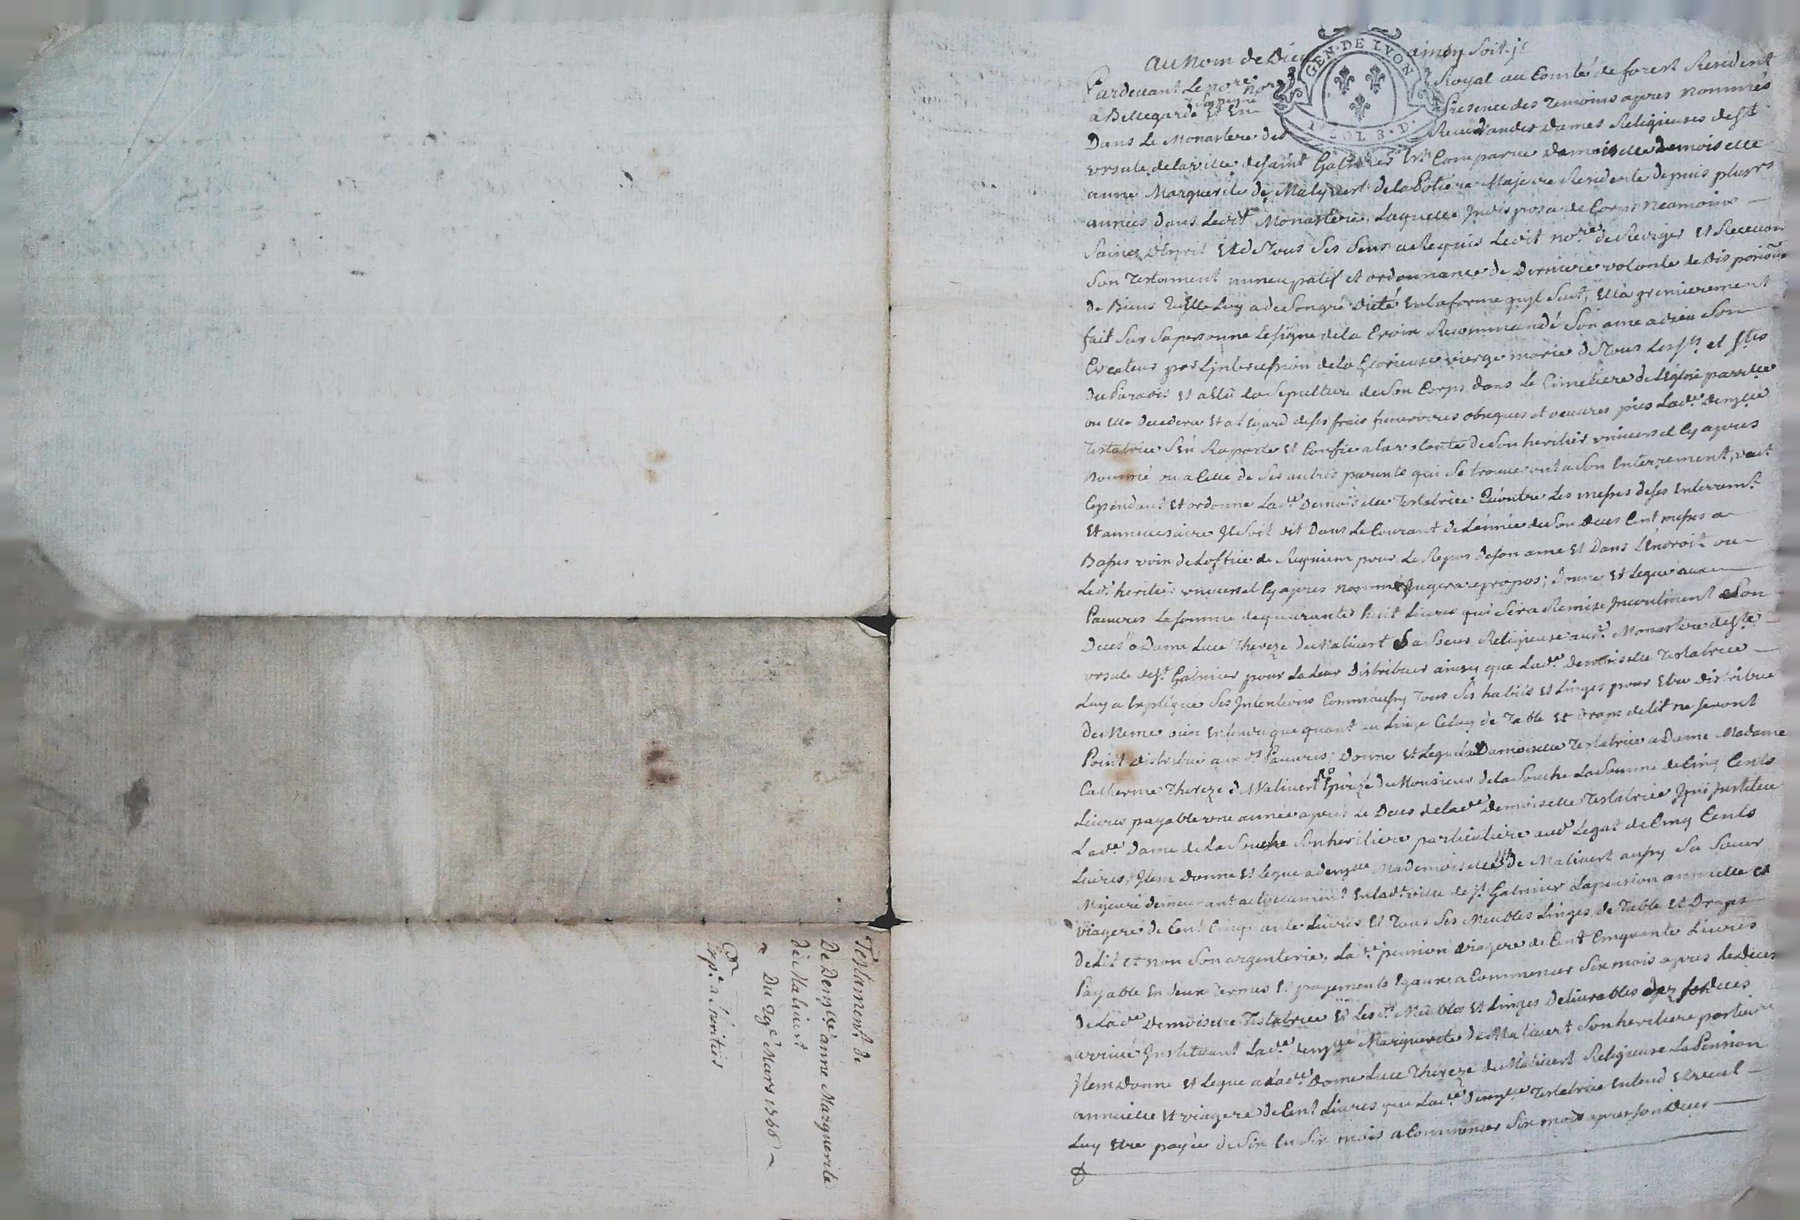 au nom de Dieu amen soit. j
GEN. DE LYON
1 SOL 8. D.
Pardevant Le no.re Royal au Comté de forest Resident
a Bellegarde et En Presence des Temoins apres nommés
Dans Le Monastere des Reverandes dames Religieuses de S.t
ursule de la ville de saint Galmier Comparue demoiselle
anne Marguerite de Malivert de la Majeure Residente depuis plus.rs
années dans Led.t Monastere, Laquelle Indisposée de Corps Neamoins
Saine d'Esprit Et de Tous ses sens a Requis Ledit no.re de Rediger et Recevoir
son Testament nuncupatif et ordonnance de derniere volonté de disposition
de Biens qu'Elle Luy a de son gré dicté En la forme qui suit, Et a premierement
fait sur sa personne Le signe de la Croix Recommandé son ame a dieu son
Createur par L'jntercession de la Glorieuse vierge marie de Tous Les s.ts et s.tes
du Paradis Et aEllû la sepulture de son Corps dans Le Cimetiere de l'Eglise parr.lle
ou elle decedera Et a l'Egard de ses frais funeraires obseques et oeuvres pies Lad.e dem.lle
Testatrice s'En Raporte Et Confie a la volonté de son heritier universel Cy apres
nommé ou a Celle de ses autres parents qui se trouveront a son Enterrement, veut
Cependant Et ordonne Lad.e demoiselle Testatrice qu'outre Les messes de ses Enterrem.t
Et anniversaire Il soit dit Dans Le Courant de L'année de son deces Cent messes
Basses voix de L'office de Requiem pour Le Repos de son ame Et Dans L'Endroit ou
Led. heritier universel Cy apres nommé jugera apropos; donne Et Legue aux
Pauvres La somme de quarante huit Livres qui sera Remise Incontinent son
deces a Dame Luce Thereze de Malivert sa soeur Religieuse aud.t Monastere de S.te
ursule de S.t Galmier pour La Leur distribuer ainsy que Lad.e demoiselle Testatrice
Luy a Expliqué ses Intentions Comme aussy Tous ses habits Et Linges pour Etre distribué
de Meme que quant au Linge Celuy de Table Et draps de lit ne seront
Point distribué aux d.s Pauvres; Donne Et Legue La Demoiselle Testatrice a Dame Madame
Catherine Thereze de Malivert Epouze de Monsieur de la Souche La somme de Cinq Cents
Livres payable une année apres Le Deces de Lad.e Demoiselle Testatrice Institue
Lad.e Dame de La Souche son heritiere particuliere aud. Legat de Cinq Cents
Livres, Item donne Et Legue a dem.lle Mademoiselle de Malivert aussy sa soeur
Majeure demeurant actuellement En lad.e ville de S.t Galmier La pension annuelle et
viagere de Cent Cinquante Livres Et Tous ses Meubles Linges de Table Et Draps
de Lit et non son argenterie. Lad.e pension viagere de Cent Cinquante Livres
Payable En deux Termes Et payements Egaux a Commencer six mois apres Le deces
de Lad.e Demoiselle Testatrice Et Les d.s Meubles Et Linges delivrables son deces
arrivé Instituant Lad.e dem.lle Marguerite de Malivert son heritiere particu.re
Item donne Et Legue a Lad.e Dame Luce Thereze de Malivert Religieuse La Pension
annuelle Et viagere de Cent Livres que Lad.e dem.lle Testatrice Entend Et veut
Luy Etre payée de six En six mois a Commencer six mois apres son deces
Testament de
De dem.lle anne Marguerite
de Malivert
Du 29.e Mars 1766